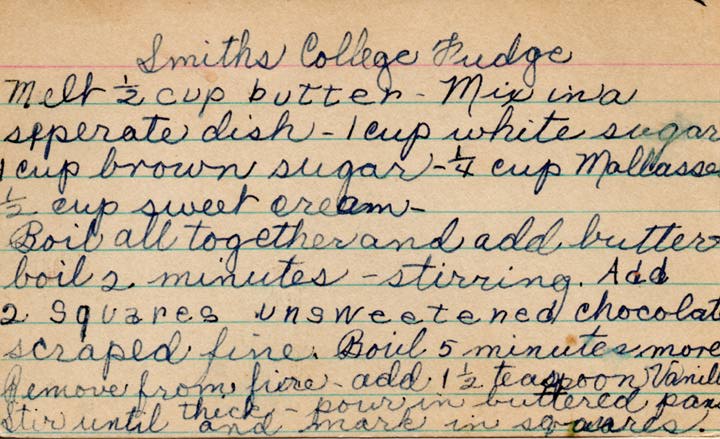 Smiths College Fudge
Melt ½ cup butter - Mix in a
sepperate dish - 1 cup white sugar
1 cup brown sugar - ¼ cup Mallasse
½ cup sweet cream -
Boil all together and add butter
boil 2 minutes - stirring. Add
2 squares unsweetened chocolat
scraped fine. Boil 5 minutes more
Remove from fire - add 1 ½ teaspoon Vanill
Stir until thick - pour in buttered pan
and mark in squares.